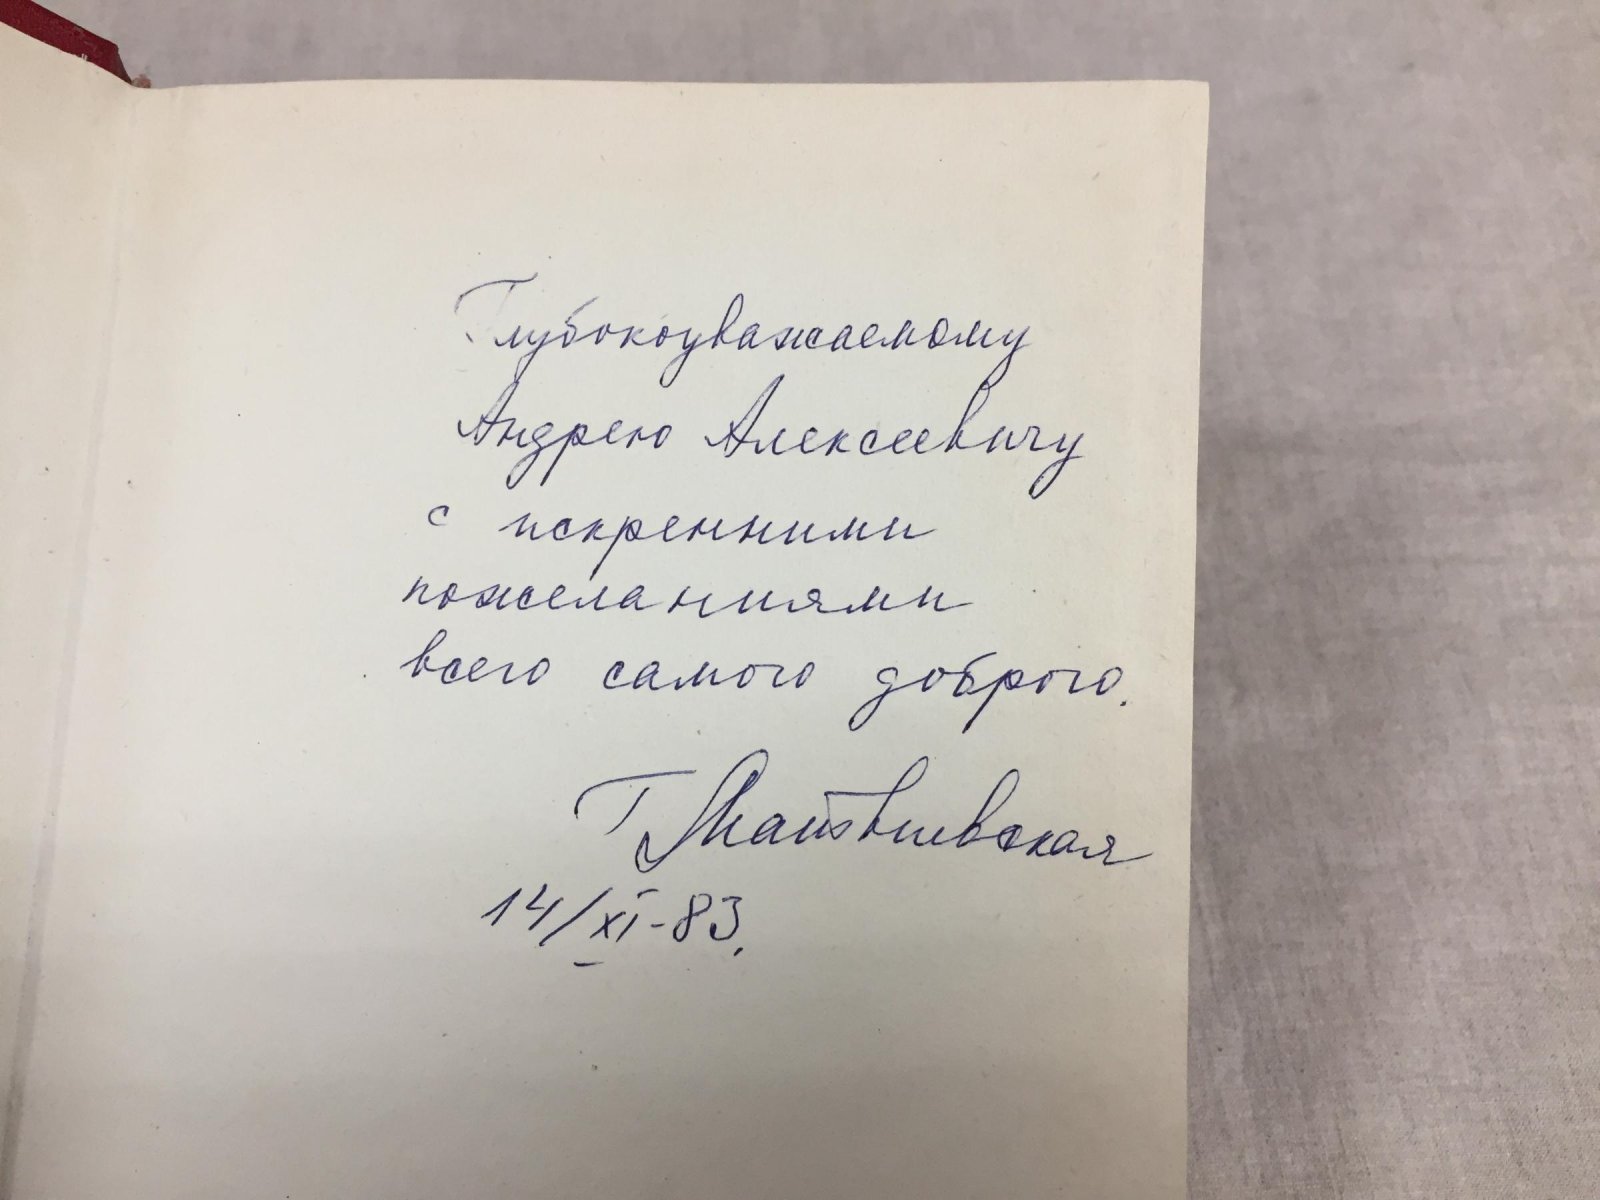 Глубокоуважаемому
Андрею Алексеевичу
с искренними
пожеланиями
всего самого доброго.
Г Матвиевская
14/XI-83.